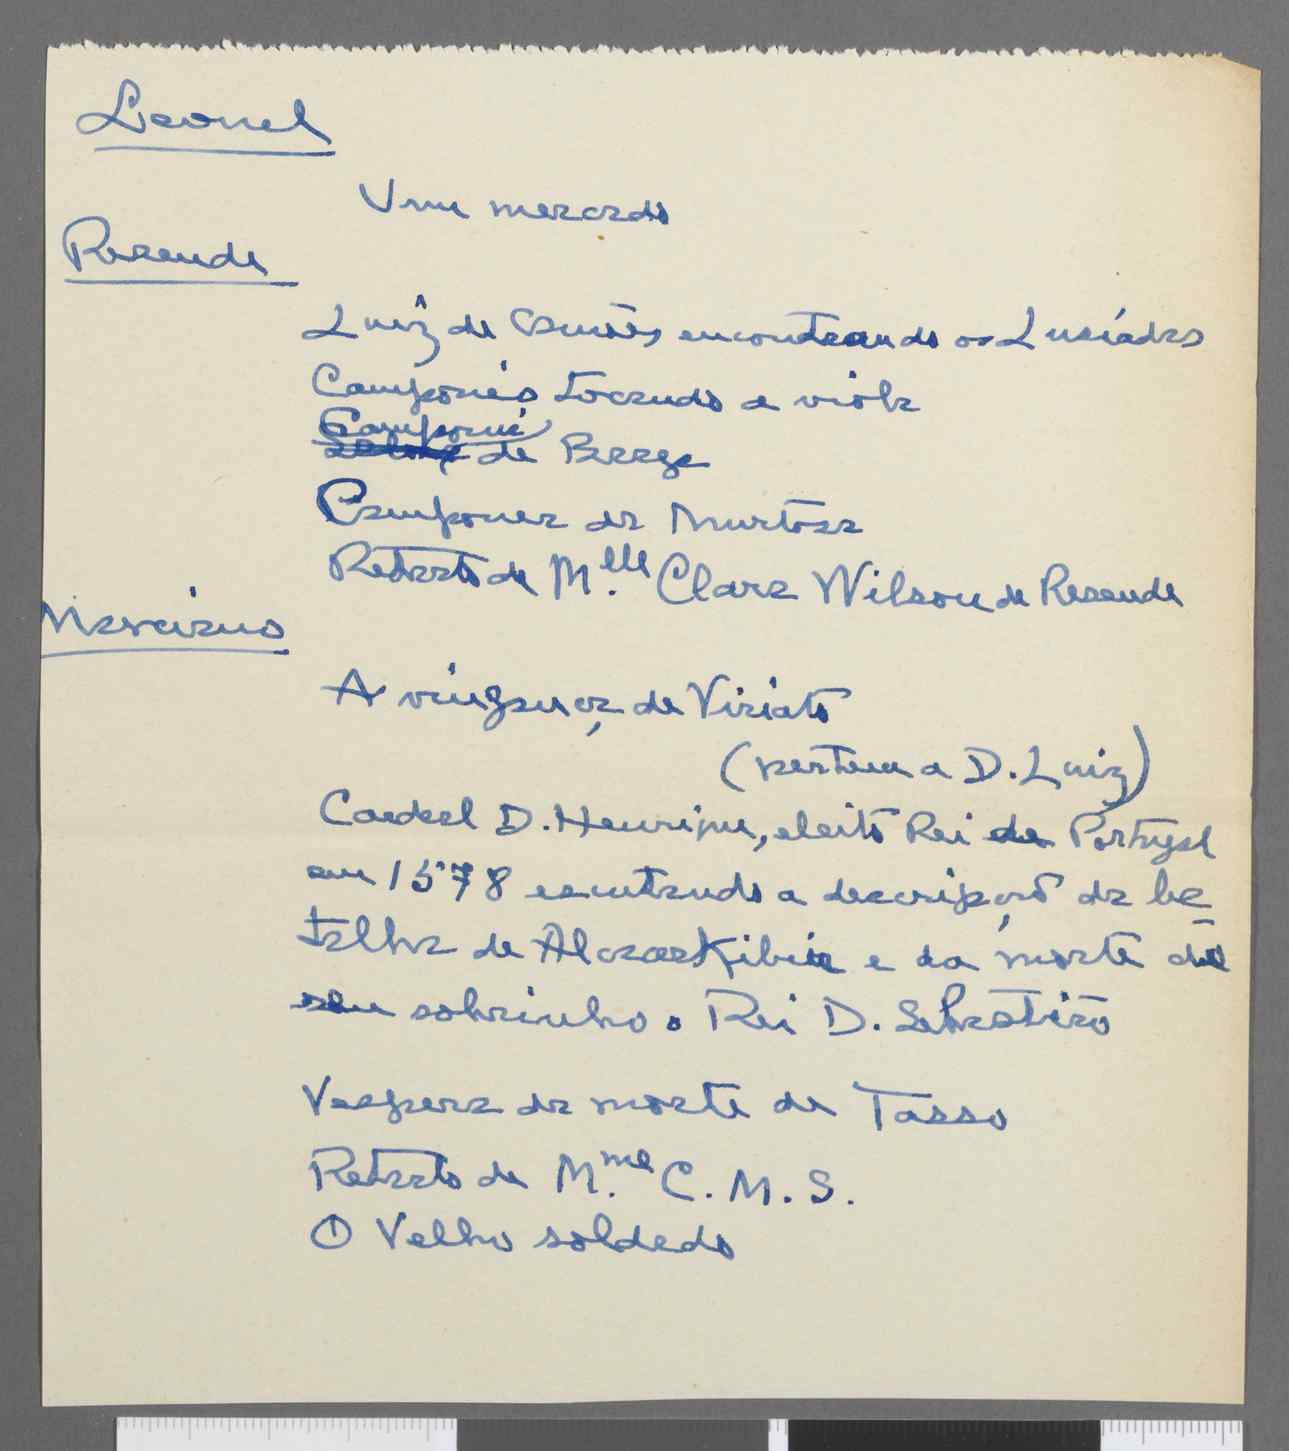 Leonel
Um mercado
Resende
Luiz de Camões encontrando os Lusíadas
Camponês tocando a viola
Camponi
de Braga
Camponez da Murtosa
Retrato de M.elle Clara Wilson de Resende
Marciano
A vingança de Viriato
(pertence a D. Luiz)
Cardeal D. Henrique, eleito Rei de Portugal
em 1578 escutando a descripção da ba-
talha de Alcacer Kibir e da morte do
seu sobrinho o Rei D. Sebastião
Vespera da morte de Tasso
Retrato de M.me C. M. S.
O Velho soldado